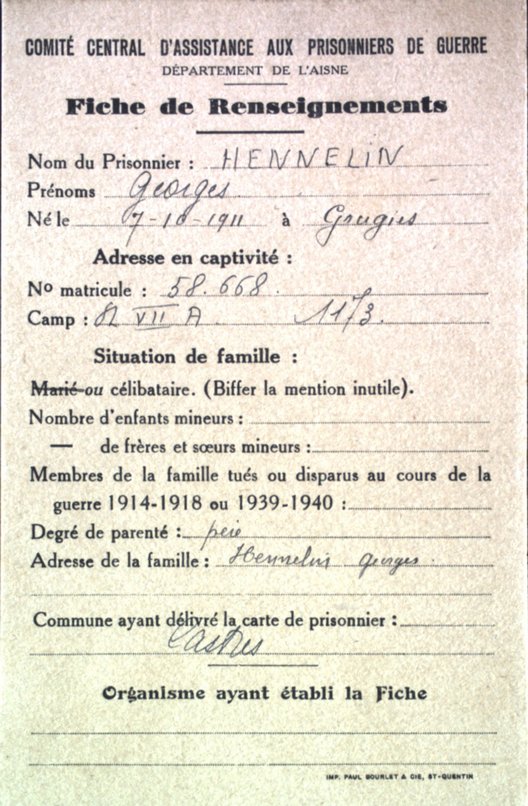 COMITÉ CENTRAL D'ASSISTANCE AUX PRISONNIERS DE GUERRE
DÉPARTEMENT DE L'AISNE
Fiche de Renseignements
Nom du Prisonnier : HENNELIN
Prénoms Georges
Né le 7-10-1911 à Grugies
Adresse en captivité :
No matricule : 58.668.
Camp : VII A 1173.
Situation de famille :
Marié ou célibataire. (Biffer la mention inutile).
Nombre d'enfants mineurs :
— de frères et sœurs mineurs :
Membres de la famille tués ou disparus au cours de la
guerre 1914-1918 ou 1939-1940 :
Degré de parenté : père
Adresse de la famille : Hennelin georges
Commune ayant délivré la carte de prisonnier :
Castres
Organisme ayant établi la Fiche
IMP. PAUL BOURLET & CIE, ST-QUENTIN